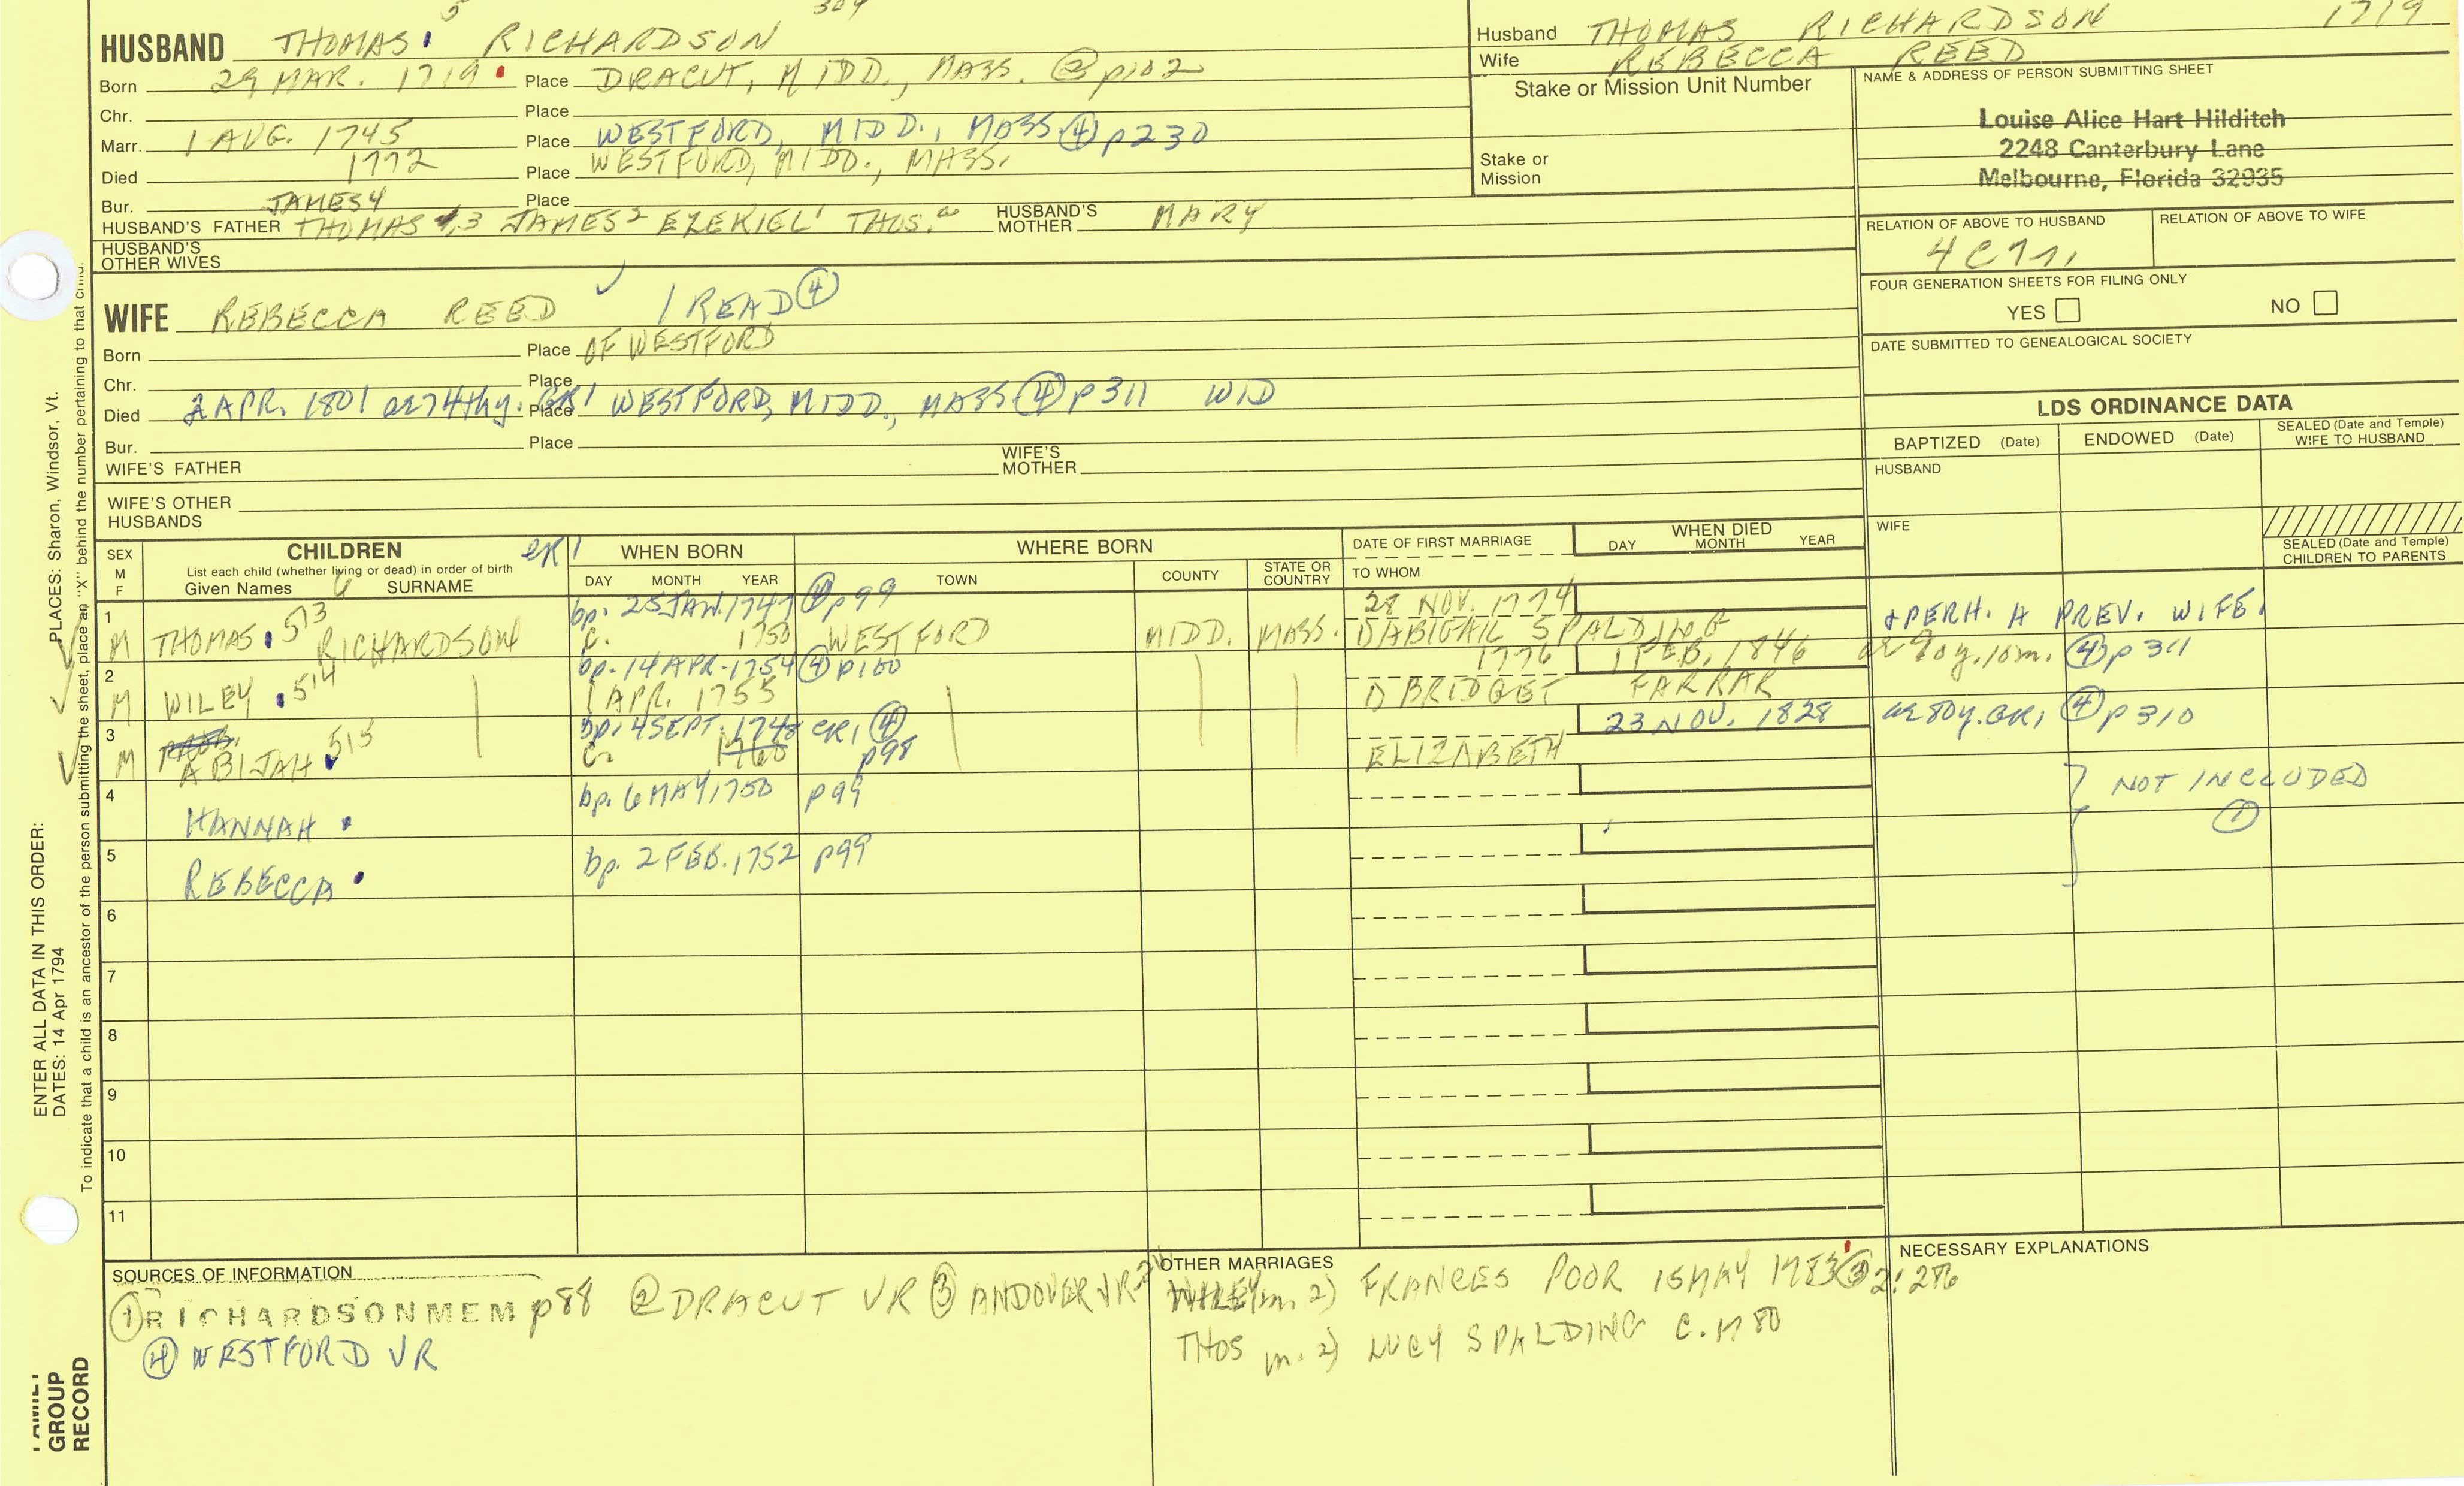 5 304
HUSBAND THOMAS RICHARDSON
Born 29 MAR. 1719 Place DRACUT, MIDD., MASS. ② p102
Chr. Place
Marr. 1 AUG. 1745 Place WESTFORD, MIDD., MASS ④ p230
Died 1772 Place WESTFORD, MIDD., MASS.
Bur. Place
JAMES4
HUSBAND'S FATHER THOMAS 3 JAMES2 EZEKIEL1 THOS.a HUSBAND'S MOTHER MARY
HUSBAND'S OTHER WIVES
WIFE REBECCA REED / READ ④
Born Place OF WESTFORD
Chr. Place
Died 2 APR. 1801 ae 74thy. GR1 Place WESTFORD, MIDD., MASS ④ p311 WID
Bur. Place
WIFE'S FATHER WIFE'S MOTHER
WIFE'S OTHER HUSBANDS
Husband THOMAS RICHARDSON 1719
Wife REBECCA REED
Stake or Mission Unit Number
Stake or Mission
NAME & ADDRESS OF PERSON SUBMITTING SHEET
Louise Alice Hart Hilditch
2248 Canterbury Lane
Melbourne, Florida 32935
RELATION OF ABOVE TO HUSBAND RELATION OF ABOVE TO WIFE
FOUR GENERATION SHEETS FOR FILING ONLY
YES NO
DATE SUBMITTED TO GENEALOGICAL SOCIETY
LDS ORDINANCE DATA
BAPTIZED (Date) ENDOWED (Date) SEALED (Date and Temple) WIFE TO HUSBAND
HUSBAND
WIFE
SEALED (Date and Temple) CHILDREN TO PARENTS
SEX M F
CHILDREN
List each child (whether living or dead) in order of birth
Given Names SURNAME
6
CR1
WHEN BORN
DAY MONTH YEAR
WHERE BORN
TOWN COUNTY STATE OR COUNTRY
DATE OF FIRST MARRIAGE
TO WHOM
WHEN DIED
DAY MONTH YEAR
1 bp. 25 JAN. 1747 ④ p99 28 NOV. 1774
M THOMAS 513 RICHARDSON c. 1750 WESTFORD MIDD. MASS. ABIGAIL SPALDING + PERH. A PREV. WIFE.
2 bp. 14 APR. 1754 ④ p100 1776 1 FEB. 1846 ae 90y.10m. ④ p311
M WILEY 514 1 APR. 1755 BRIDGET FARRAR
3 bp. 4 SEPT. 1748 CR1 ④ p98 23 NOV. 1828 ae 80y. GR1 ④ p310
M PROB. ABIJAH 515 c. 1760 ELIZABETH
4 HANNAH bp. 6 MAY 1750 p99 NOT INCLUDED ①
5 REBECCA bp. 2 FEB. 1752 p99
6
7
8
9
10
11
SOURCES OF INFORMATION
① RICHARDSON MEM p88 ② DRACUT VR ③ ANDOVER VR
④ WESTFORD VR
OTHER MARRIAGES
WILEY m. 2) FRANCES POOR 15 MAY 1783 ③ 2:286
THOS m. 2) LUCY SPALDING c. 1780
NECESSARY EXPLANATIONS
PLACES: Sharon, Windsor, Vt.
To indicate that a child is an ancestor of the person submitting the sheet, place an "X" behind the number pertaining to that child.
ENTER ALL DATA IN THIS ORDER:
DATES: 14 Apr 1794
FAMILY GROUP RECORD